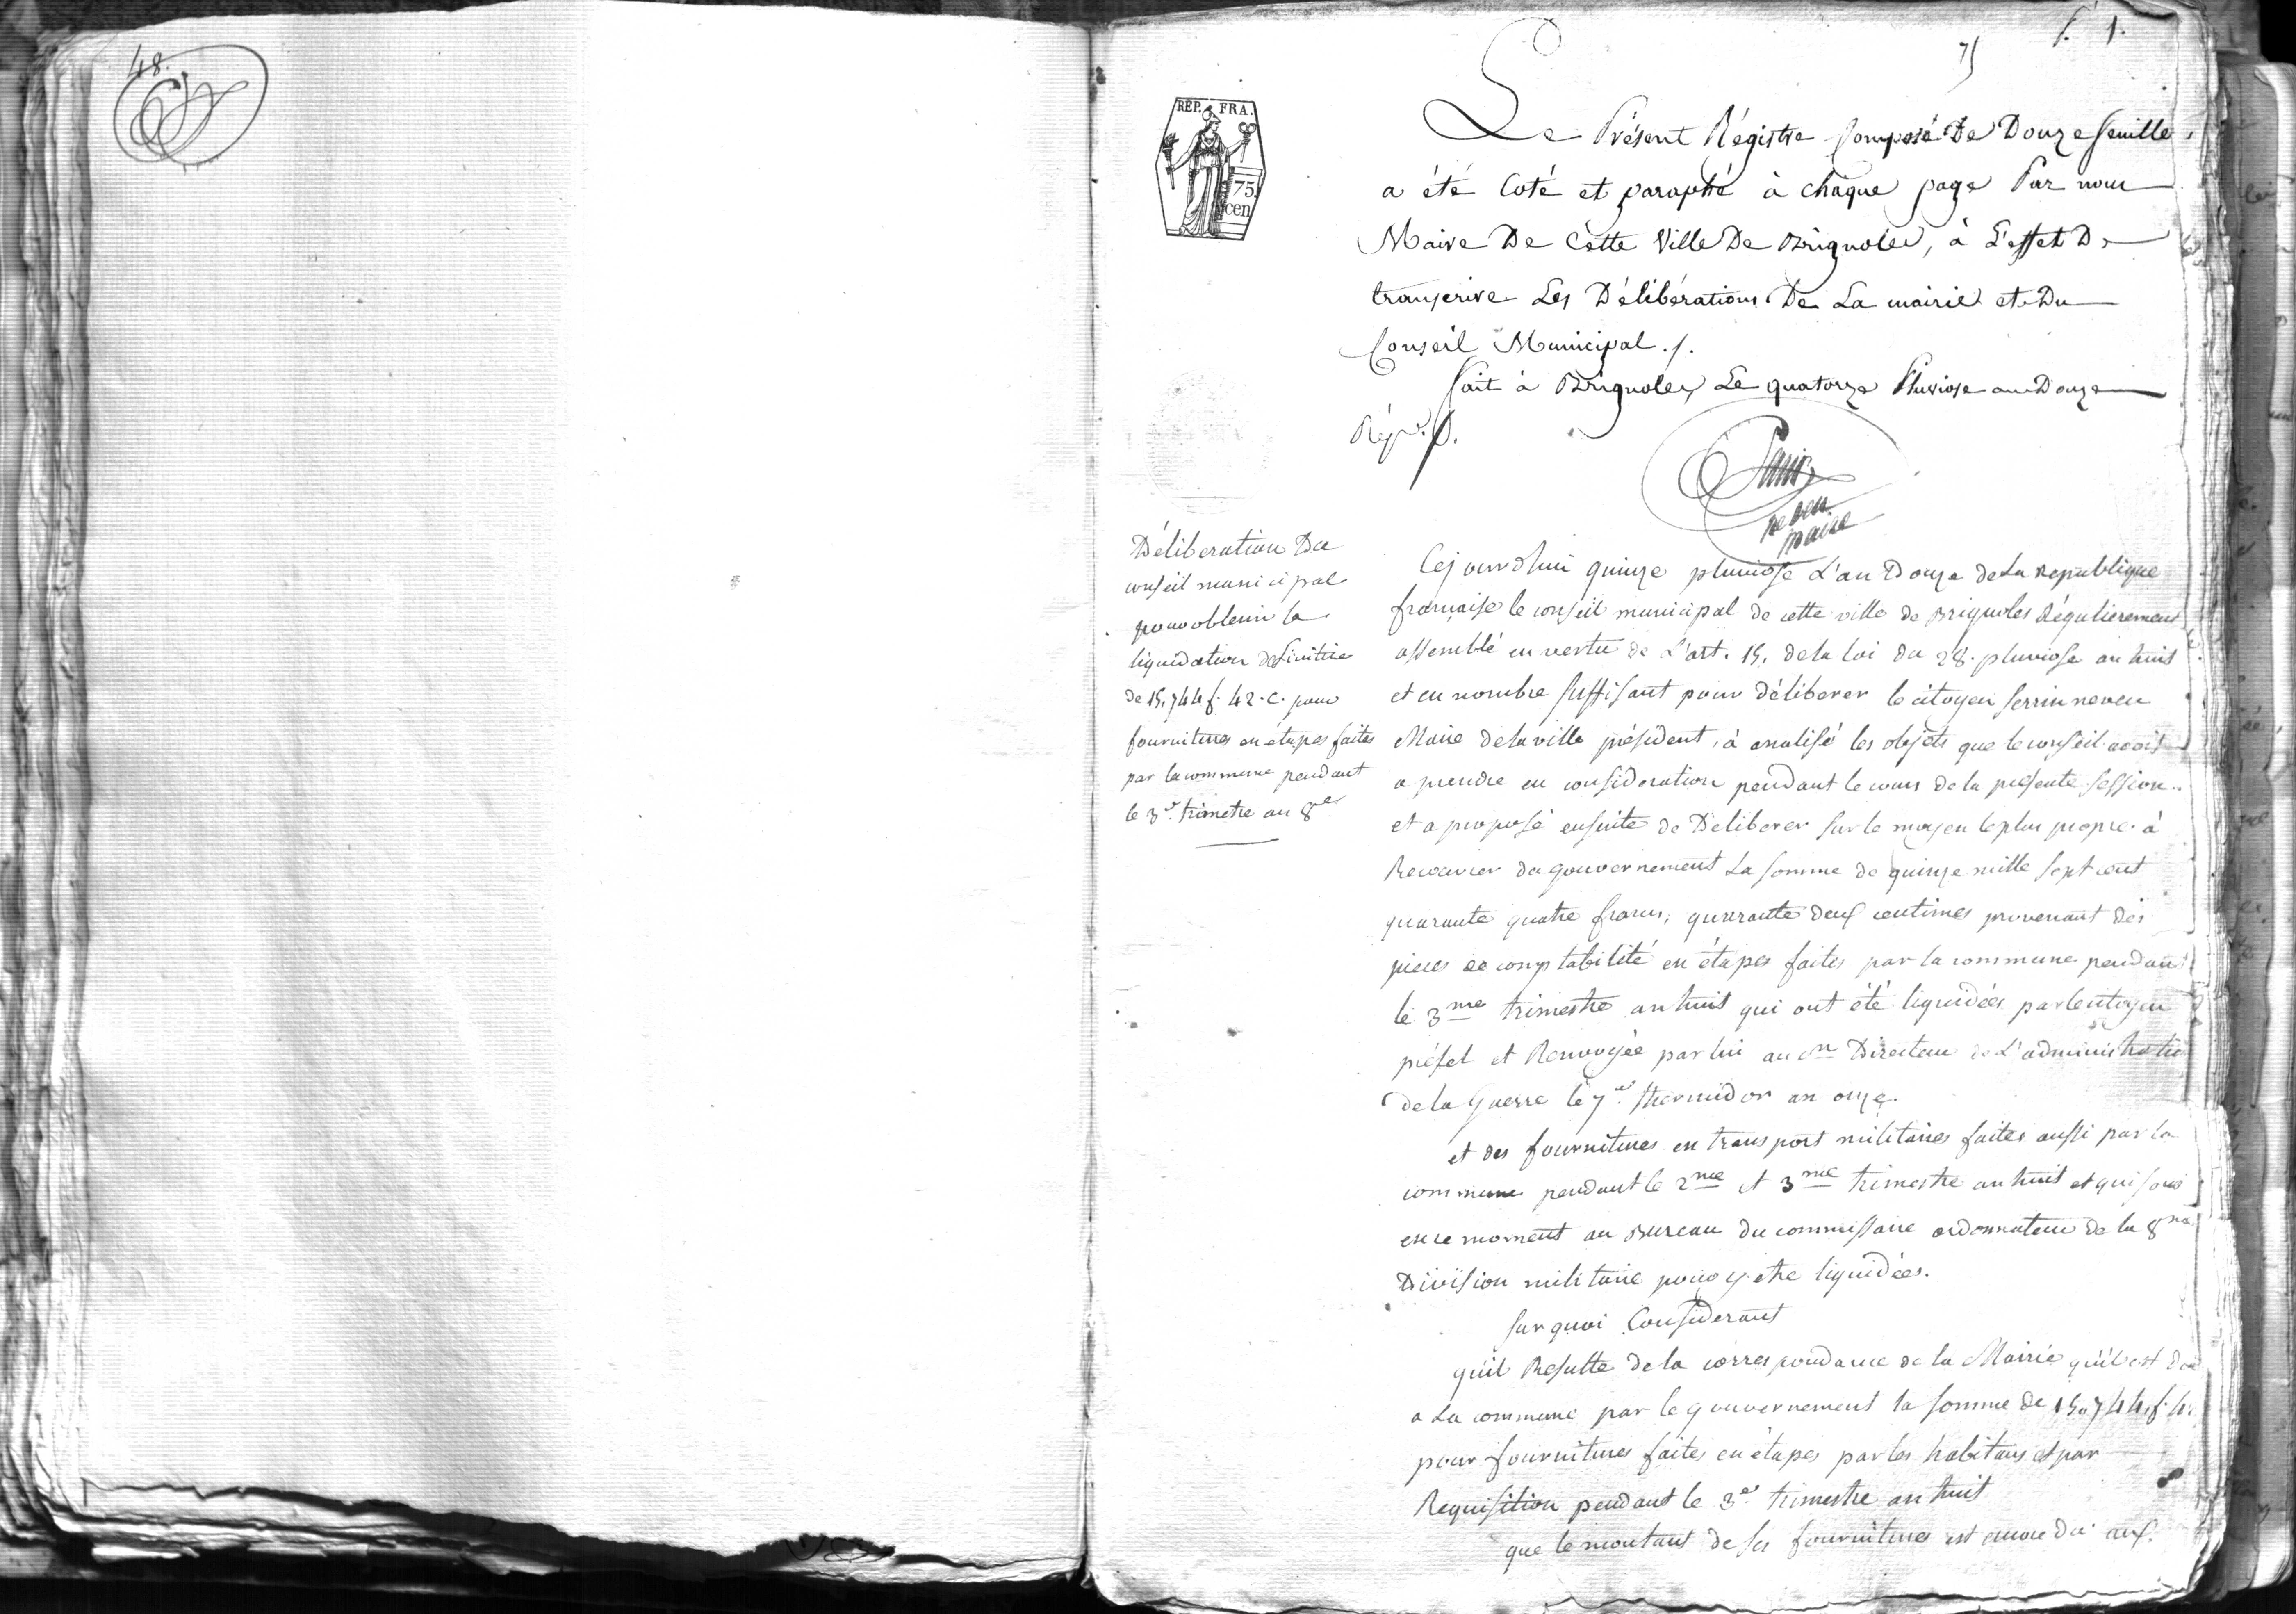 48.
f. 1.
REP. FRA.
75
cen
Le Présent Régistre Composé De Douze feuille
a été Coté et paraphé à chaque page Par nous
Maire De Cette Ville De Brignoles, à L'effet De
transcrire Les Délibérations De La mairie et Du
Conseil Municipal ./.
fait à Brignoles, Le quatorze Pluviose an Douze
neveu
maire
Déliberation Du
conseil municipal
pour obtenir la
liquidation définitive
de 15,744 f. 42. c. pour
fournitures en étapes faites
par la commune pendant
le 3e. trimetre an 8e
Cejourdhui quinze pluviose L'an Douze de La Republique
francaise le conseil municipal de cette ville de Brignoles Régulierement
assemblé en vertu de L'art. 15, de la loi du 28. pluviose an huit
et en nombre suffisant pour déliberer le citoyen neveu
Maire de la ville président, à analisé les objets que le conseil avoit
a prendre en consideration pendant le cours de la presente session
et a proposé ensuite de Deliberer sur le moyen le plus propre à
Recouvrer du gouvernement La somme de quinze mille sept cent
quarante quatre francs, quarante deux centimes provenant des
pieces de comptabilité en étapes faites par la commune pendant
le 3me trimestre an huit qui ont été liquidées par le citoyen
préfet et Renvoyée par lui au cn Directeur de L'administratio
de la Guerre le 7e. thermidor an onze.
et des fournitures en transport militaires faites aussi par la
commune pendant le 2me et 3me trimestre an huit et qui sont
en ce moment au Bureau du commissaire ordonnateur de la 8me
Division militaire pour y etre liquidées.
sur quoi Considerant
qu'il Resulte de la correspondance de la Mairie qu'il est du
a La commune par le gouvernement la somme de 15,744, f. 4
pour fournitures faites en étapes par les habitans et par
Requisition pendant le 3e. trimestre an huit
que le montant de ses fournitures est encore du aux